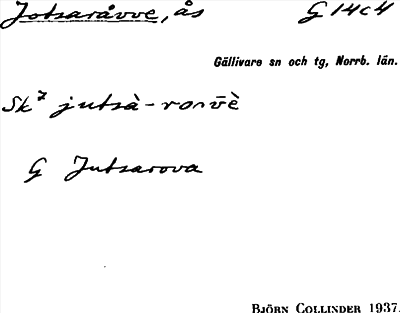 Jotsaråvve, ås G 14c4
Gällivare sn och tg, Norrb. län.
Sk⁷ jutsà-
G Jutsarova
BJÖRN COLLINDER 1937.